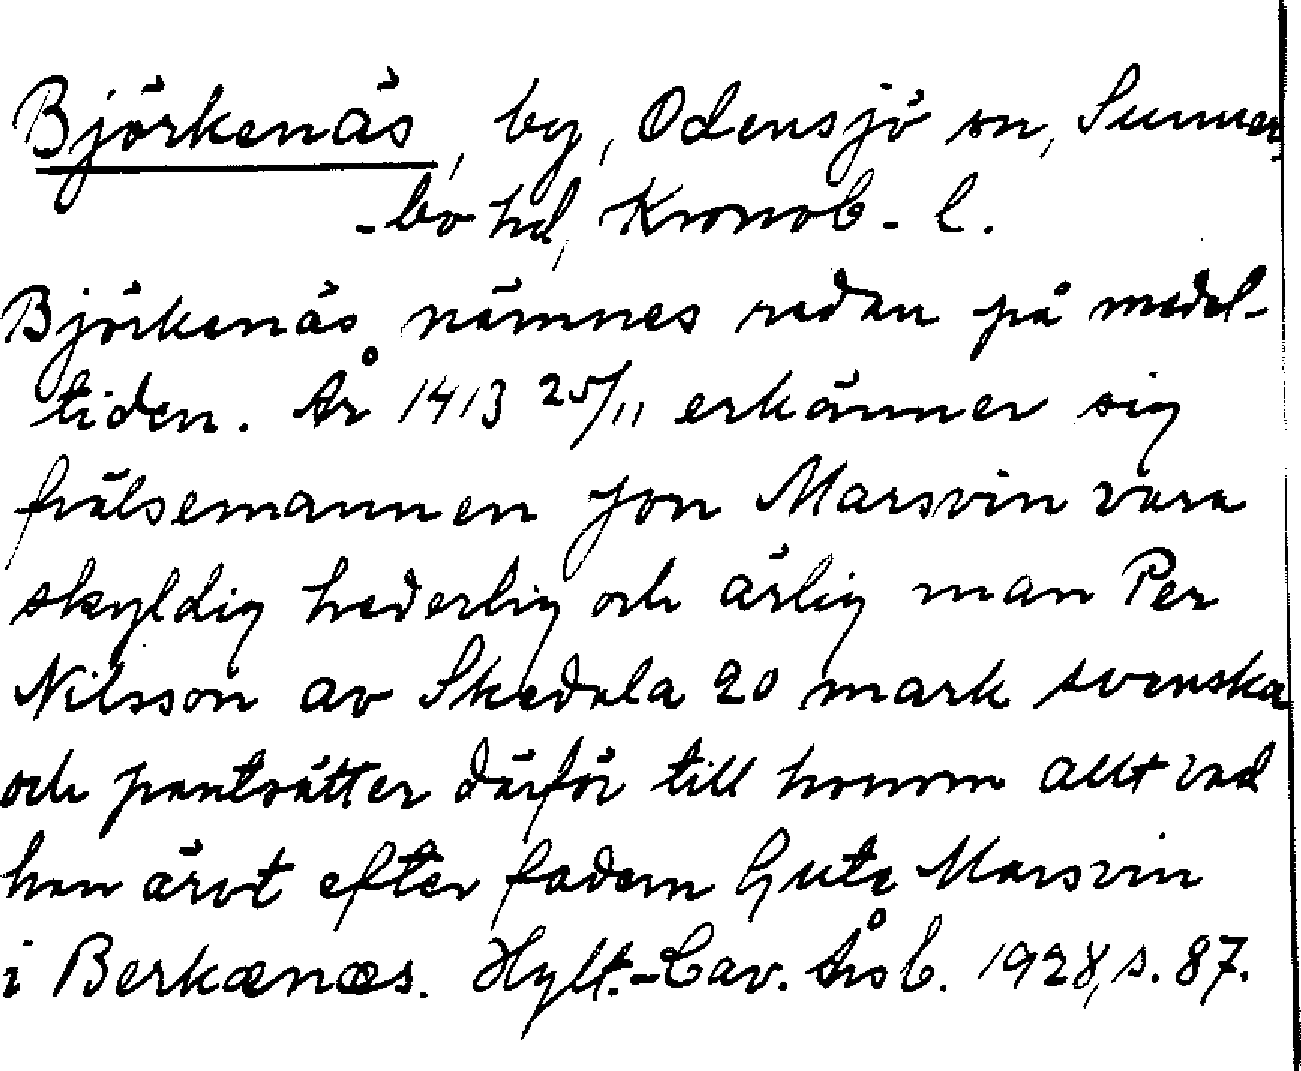 Björkenäs, by, Odensjö sn, Sunner-
-bo hd, Kronob. l.
Björkenäs nämnes redan på medel-
tiden. År 1413 25/11 erkänner sig
frälsemannen Jon Marsvin vara
skyldig hederlig och ärlig man Per
Nilsson av Skedala 20 mark svenska
och pantsätter därför till honom allt vad
han ärvt efter fadern Gute Marsvin
i Berkænæs. Hylt.-Cav. Årsb. 1928, s. 87.